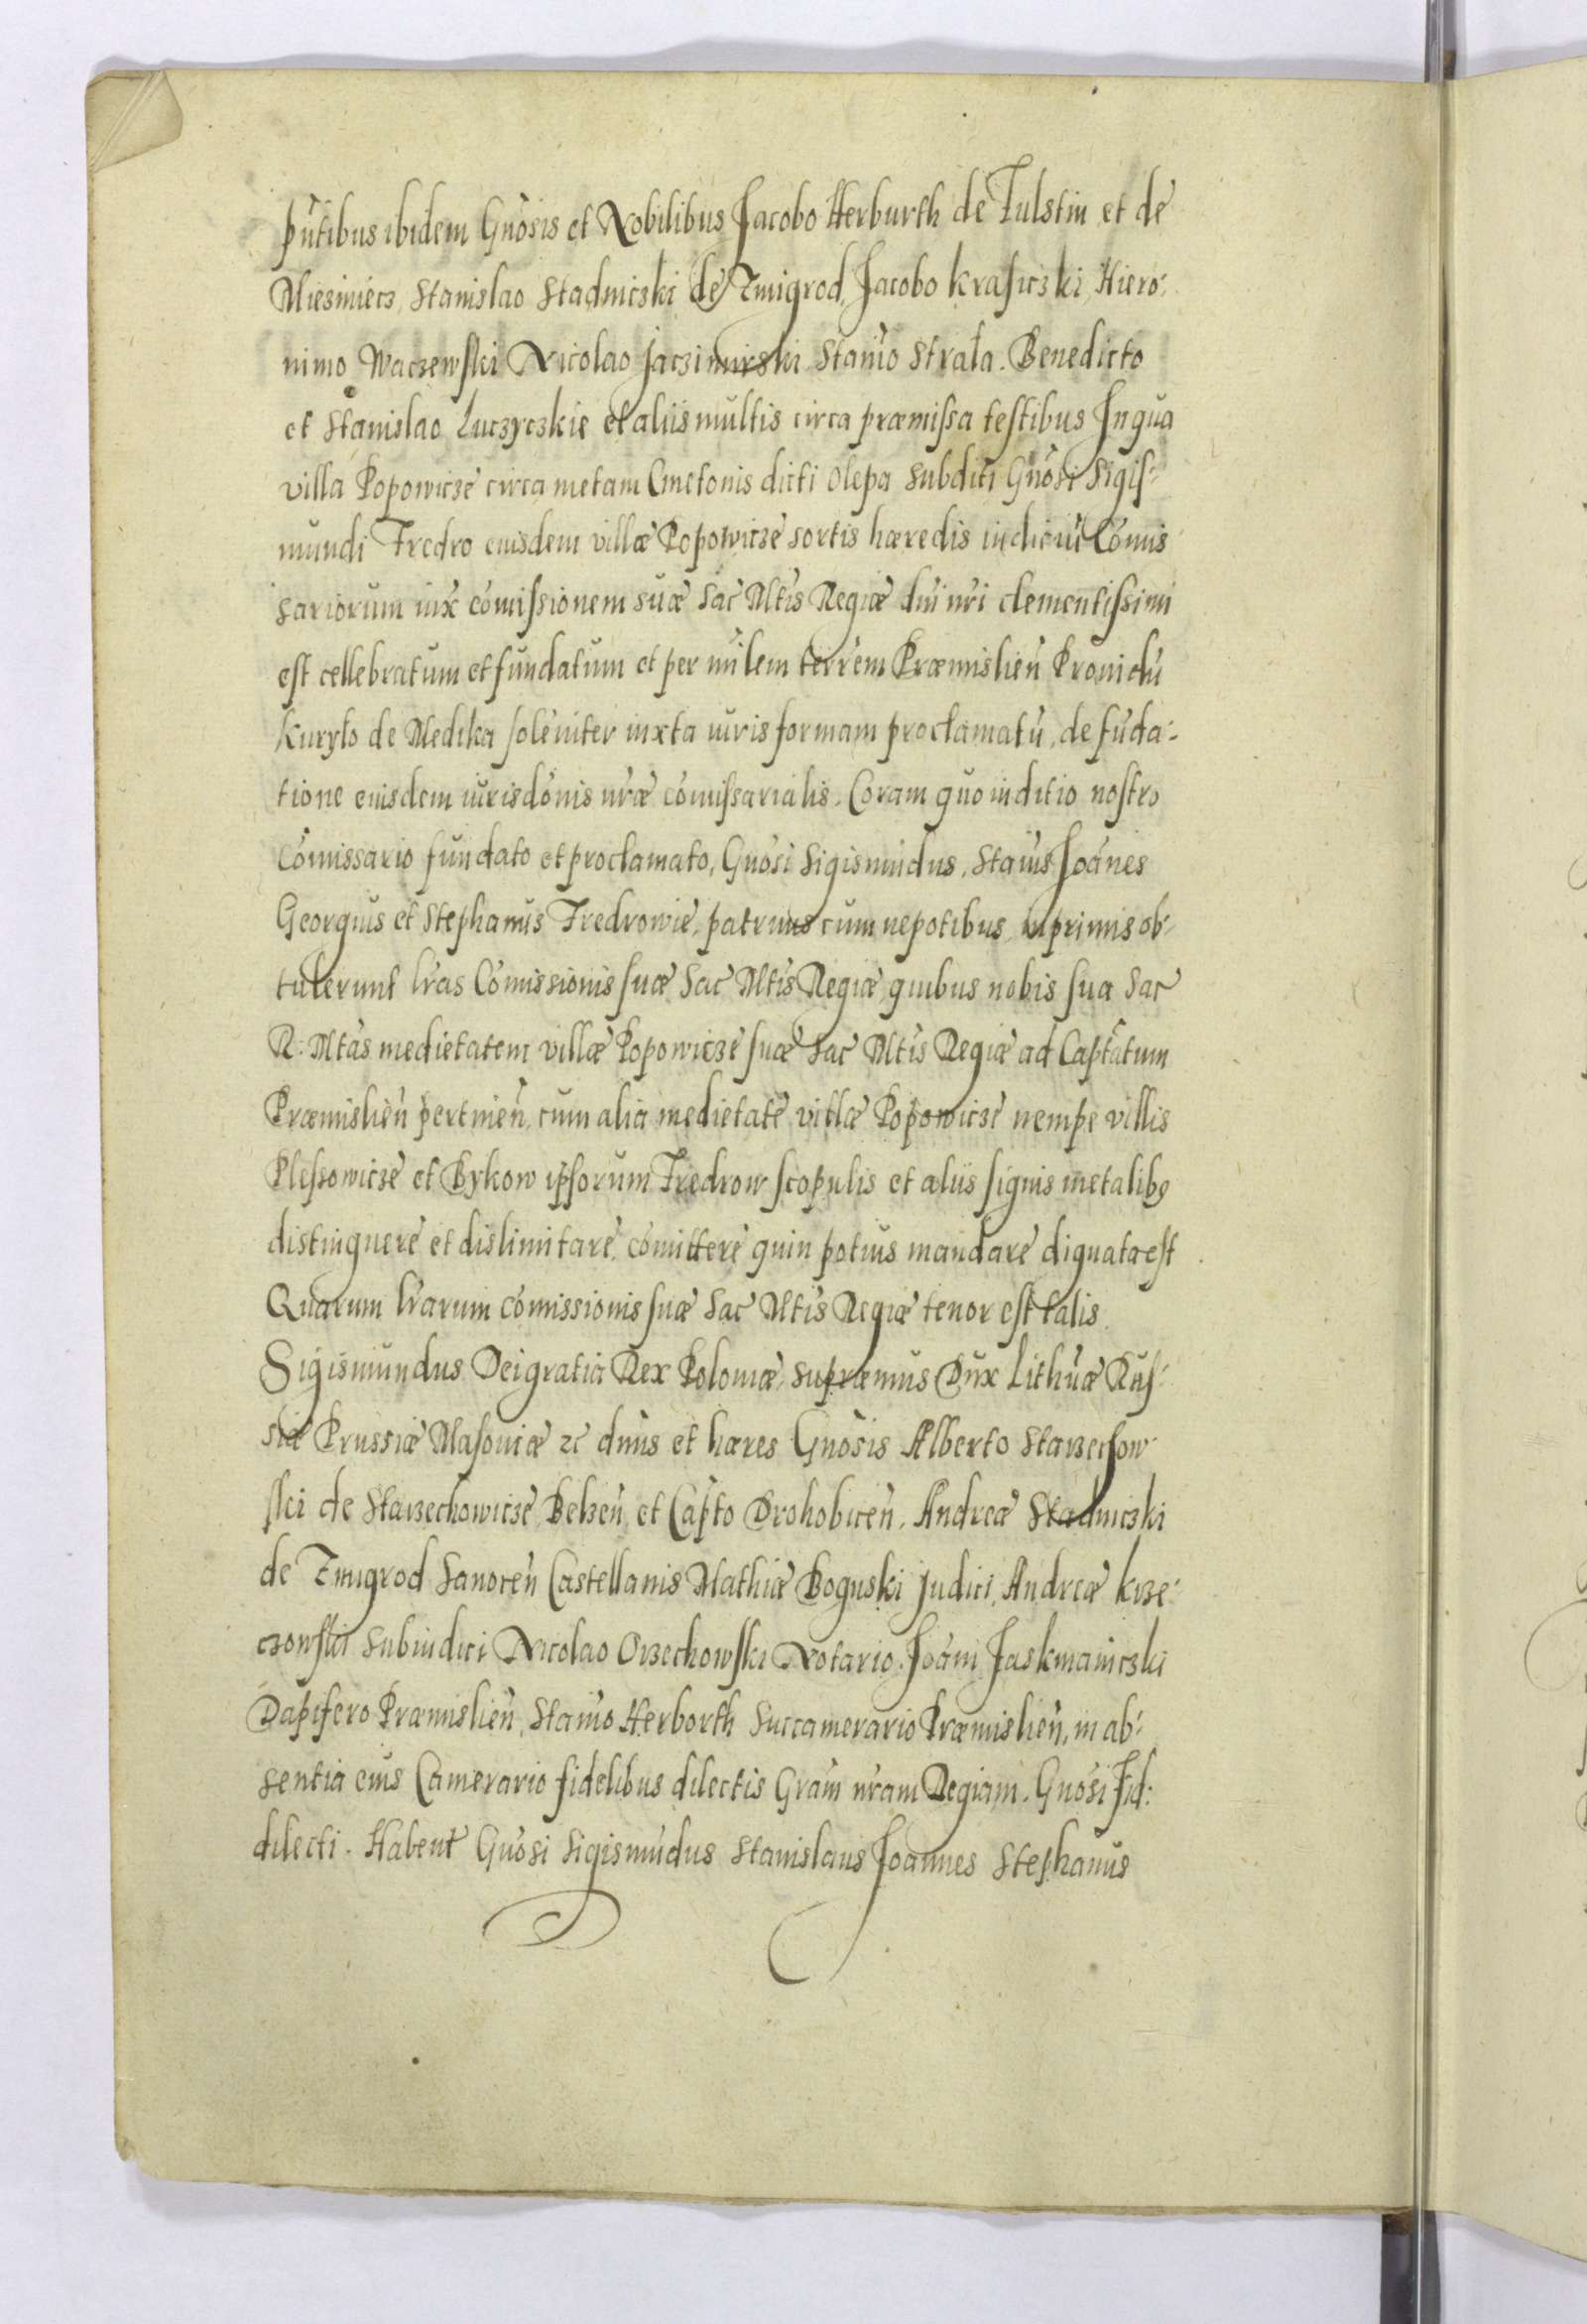 pn̄tibus ibidem Gn̄osis et Nobilibus Jacobo Herburth de Fulstin et de
Miesiniecz, Stanislao Stadniczki de Zmigrod, Jacobo Krasiczki, Hiero-
nimo Waczewski Nicolao Jaczimirski Stan̄io Strala. Benedicto
et Stanislao Luczyczkie et aliis multis circa præmissa testibus In qua
villa Popowicze circa metam Cmetonis dicti Olepa subditi Gn̄osi Sigis-
mundi Fredro eiusdem villæ Popowicze sortis hæredis iudiciū Com̄is
sariorum iux com̄issionem suæ Sac Mtis Regiæ dni nr̄i clementissimi
est cellebratum et fundatum et per m̄ilem terr̄em Præmislien̄ Providū
Kurylo de Medika solen̄iter iuxta iuris formam proclamatū, de fūda-
tione eiusdem iurisdōnis nr̄æ com̄issarialis. Coram quo iuditio nostro
Com̄issario fundato et proclamato, Gn̄osi Sigismūdus, Stan̄us Joānes
Georgius et Stephanus Fredrowie, patruus cum nepotibus, inprimis ob-
tulerunt lr̄as Com̄issionis suæ Sac Mtis Regiæ, quibus nobis sua Sac
R: Mtas medietatem villæ Popowicze suæ Sac Mtis Regiæ ad Captātum
Præmislien̄ pertinen̄, cum alia medietate villæ Popowicze nempe villis
Plessowicze et Bykow ipsorum Fredrow scopulis et aliis signis metalibꝫ
distinguere et dislimitare, com̄ittere quin potius mandare dignata est
Quarum lr̄arum Com̄issionis suæ Sac Mtis Regiæ tenor est talis.
Sigismundus Dei gratia Rex Poloniæ, Supræmus Dux Lithuæ Rus-
siæ Prussiæ Masoviæ ⁊c dn̄us et hæres Gn̄osis Alberto Starzechow-
ski de Starzechowicze Belzen̄, et Capto Drohobicen̄, Andreæ Stadniczki
de Zmigrod Sanocen̄ Castellanis Mathiæ Boguski Judici, Andreæ Krze-
czowski Subiudici Nicolao Orzechowski Notario, Joāni Jaskmaniczki
Dapifero Præmislien̄, Stan̄io Herborth Succamerario Præmislien̄, in ab-
sentia eius Camerario fidelibus dilectis Gram̄ nr̄am Regiam. Gn̄osi Fid:
dilecti. Habent Gn̄osi Sigismūdus Stanislaus Joannes Stephanus